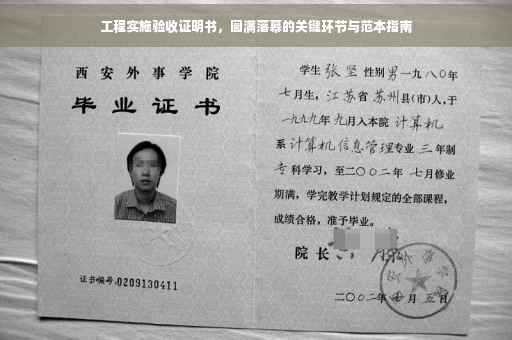 工程实施验收证明书，圆满落幕的关键环节与范本指南
西安外事学院
毕业证书
证书编号:0209130411
学生 张坚 性别 男 一九八〇年
七月生，江苏省 苏州县(市)人,于
一九九九年 九月入本院 计算机
系 计算机信息管理专业 三 年制
专 科学习，至二〇〇二年 七月修业
期满，学完教学计划规定的全部课程，
成绩合格，准予毕业。
院长
二〇〇二年 七 月 五 日